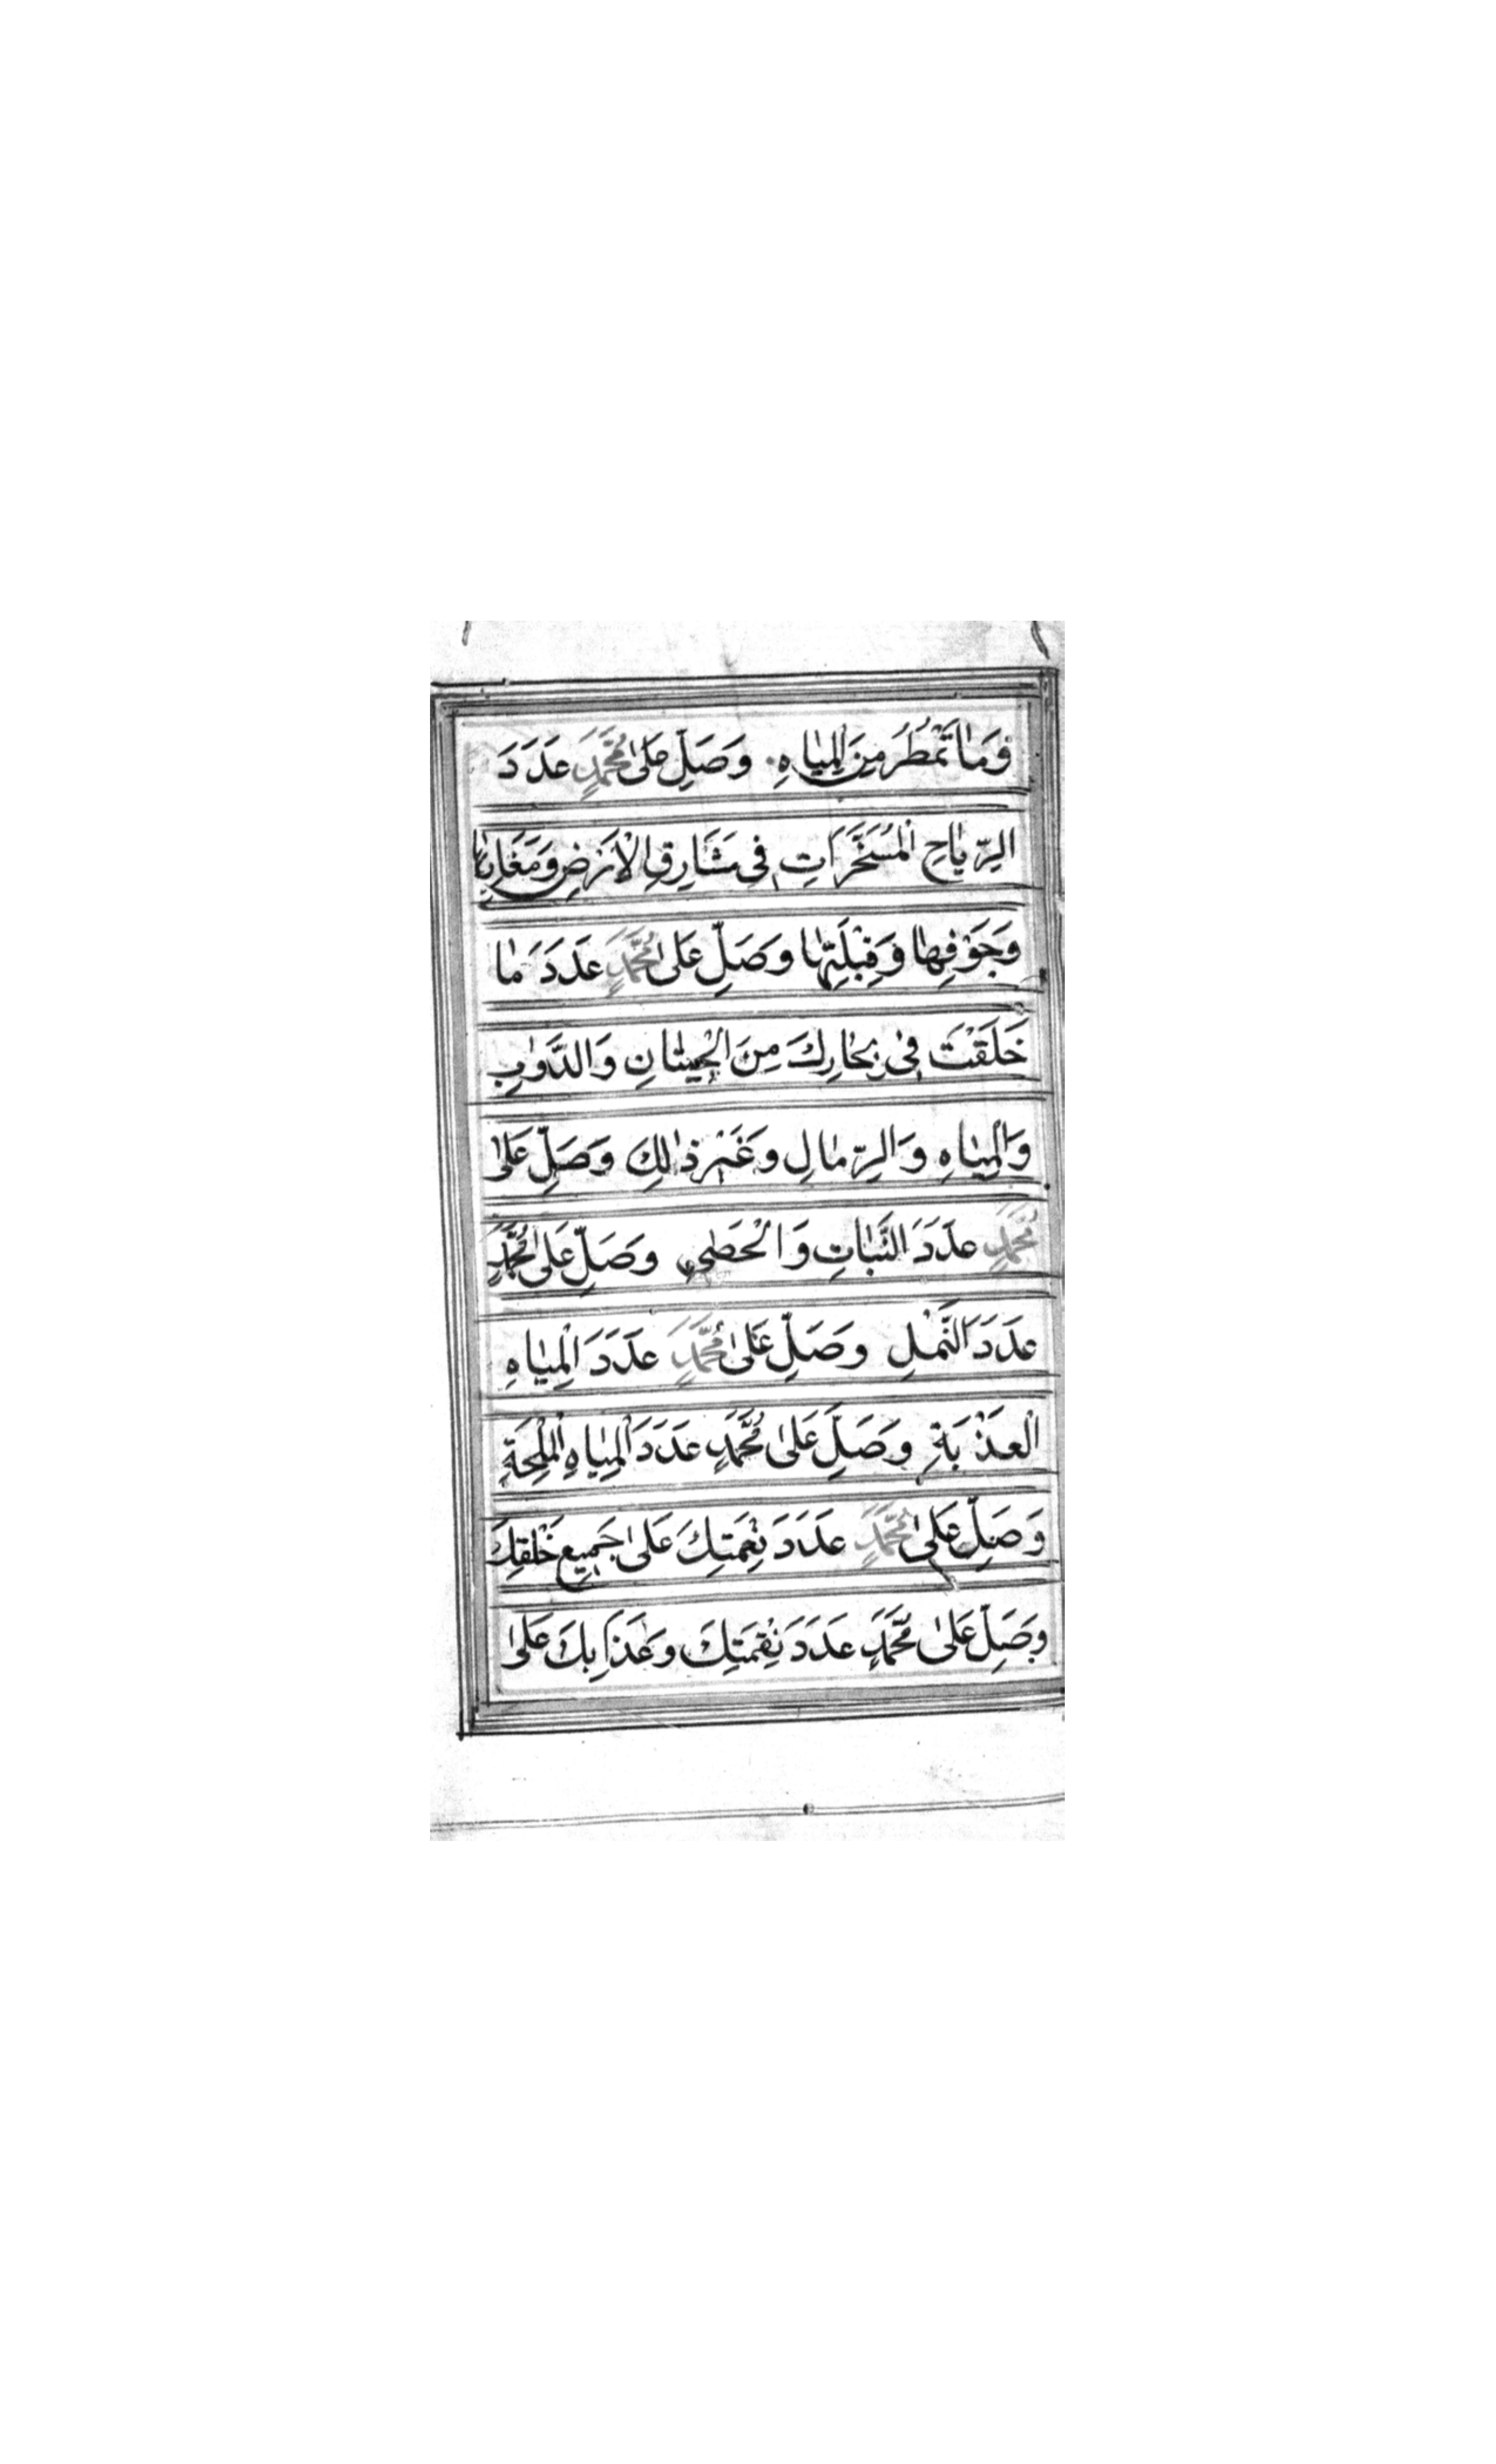 وَمَا تَمْطُرُ مِنَ الْمِيَاهِ وَصَلِّ عَلَى مُحَمَّدٍ عَدَدَ
الرِّيَاحِ الْمُسَخَّرَاتِ فِي مَشَارِقِ الْاَرْضِ وَمَغَارِبِهَا
وَجَوْفِهَا وَقِبْلَتِهَا وَصَلِّ عَلَى مُحَمَّدٍ عَدَدَ مَا
خَلَقْتَ فِي بِحَارِكَ مِنَ الْحِيتَانِ وَالدَّوَابِ
وَالْمِيَاهِ وَالرِّمَالِ وَغَيْرِ ذَالِكَ وَصَلِّ عَلَى
مُحَمَّدٍ عَدَدَ النَّبَاتِ وَالْحَصَى وَصَلِّ عَلَى مُحَمَّدٍ
عَدَدَ النَّمْلِ وَصَلِّ عَلَى مُحَمَّدٍ عَدَدَ الْمِيَاهِ
الْعَذْبَةِ وَصَلِّ عَلَى مُحَمَّدٍ عَدَدَ الْمِيَاهِ الْمِلْحَةِ
وَصَلِّ عَلَى مُحَمَّدٍ عَدَدَ نِعْمَتِكَ عَلَى جَمِيعِ خَلْقِكَ
وَصَلِّ عَلَى مُحَمَّدٍ عَدَدَ نِقْمَتِكَ وَعَذَابِكَ عَلَى